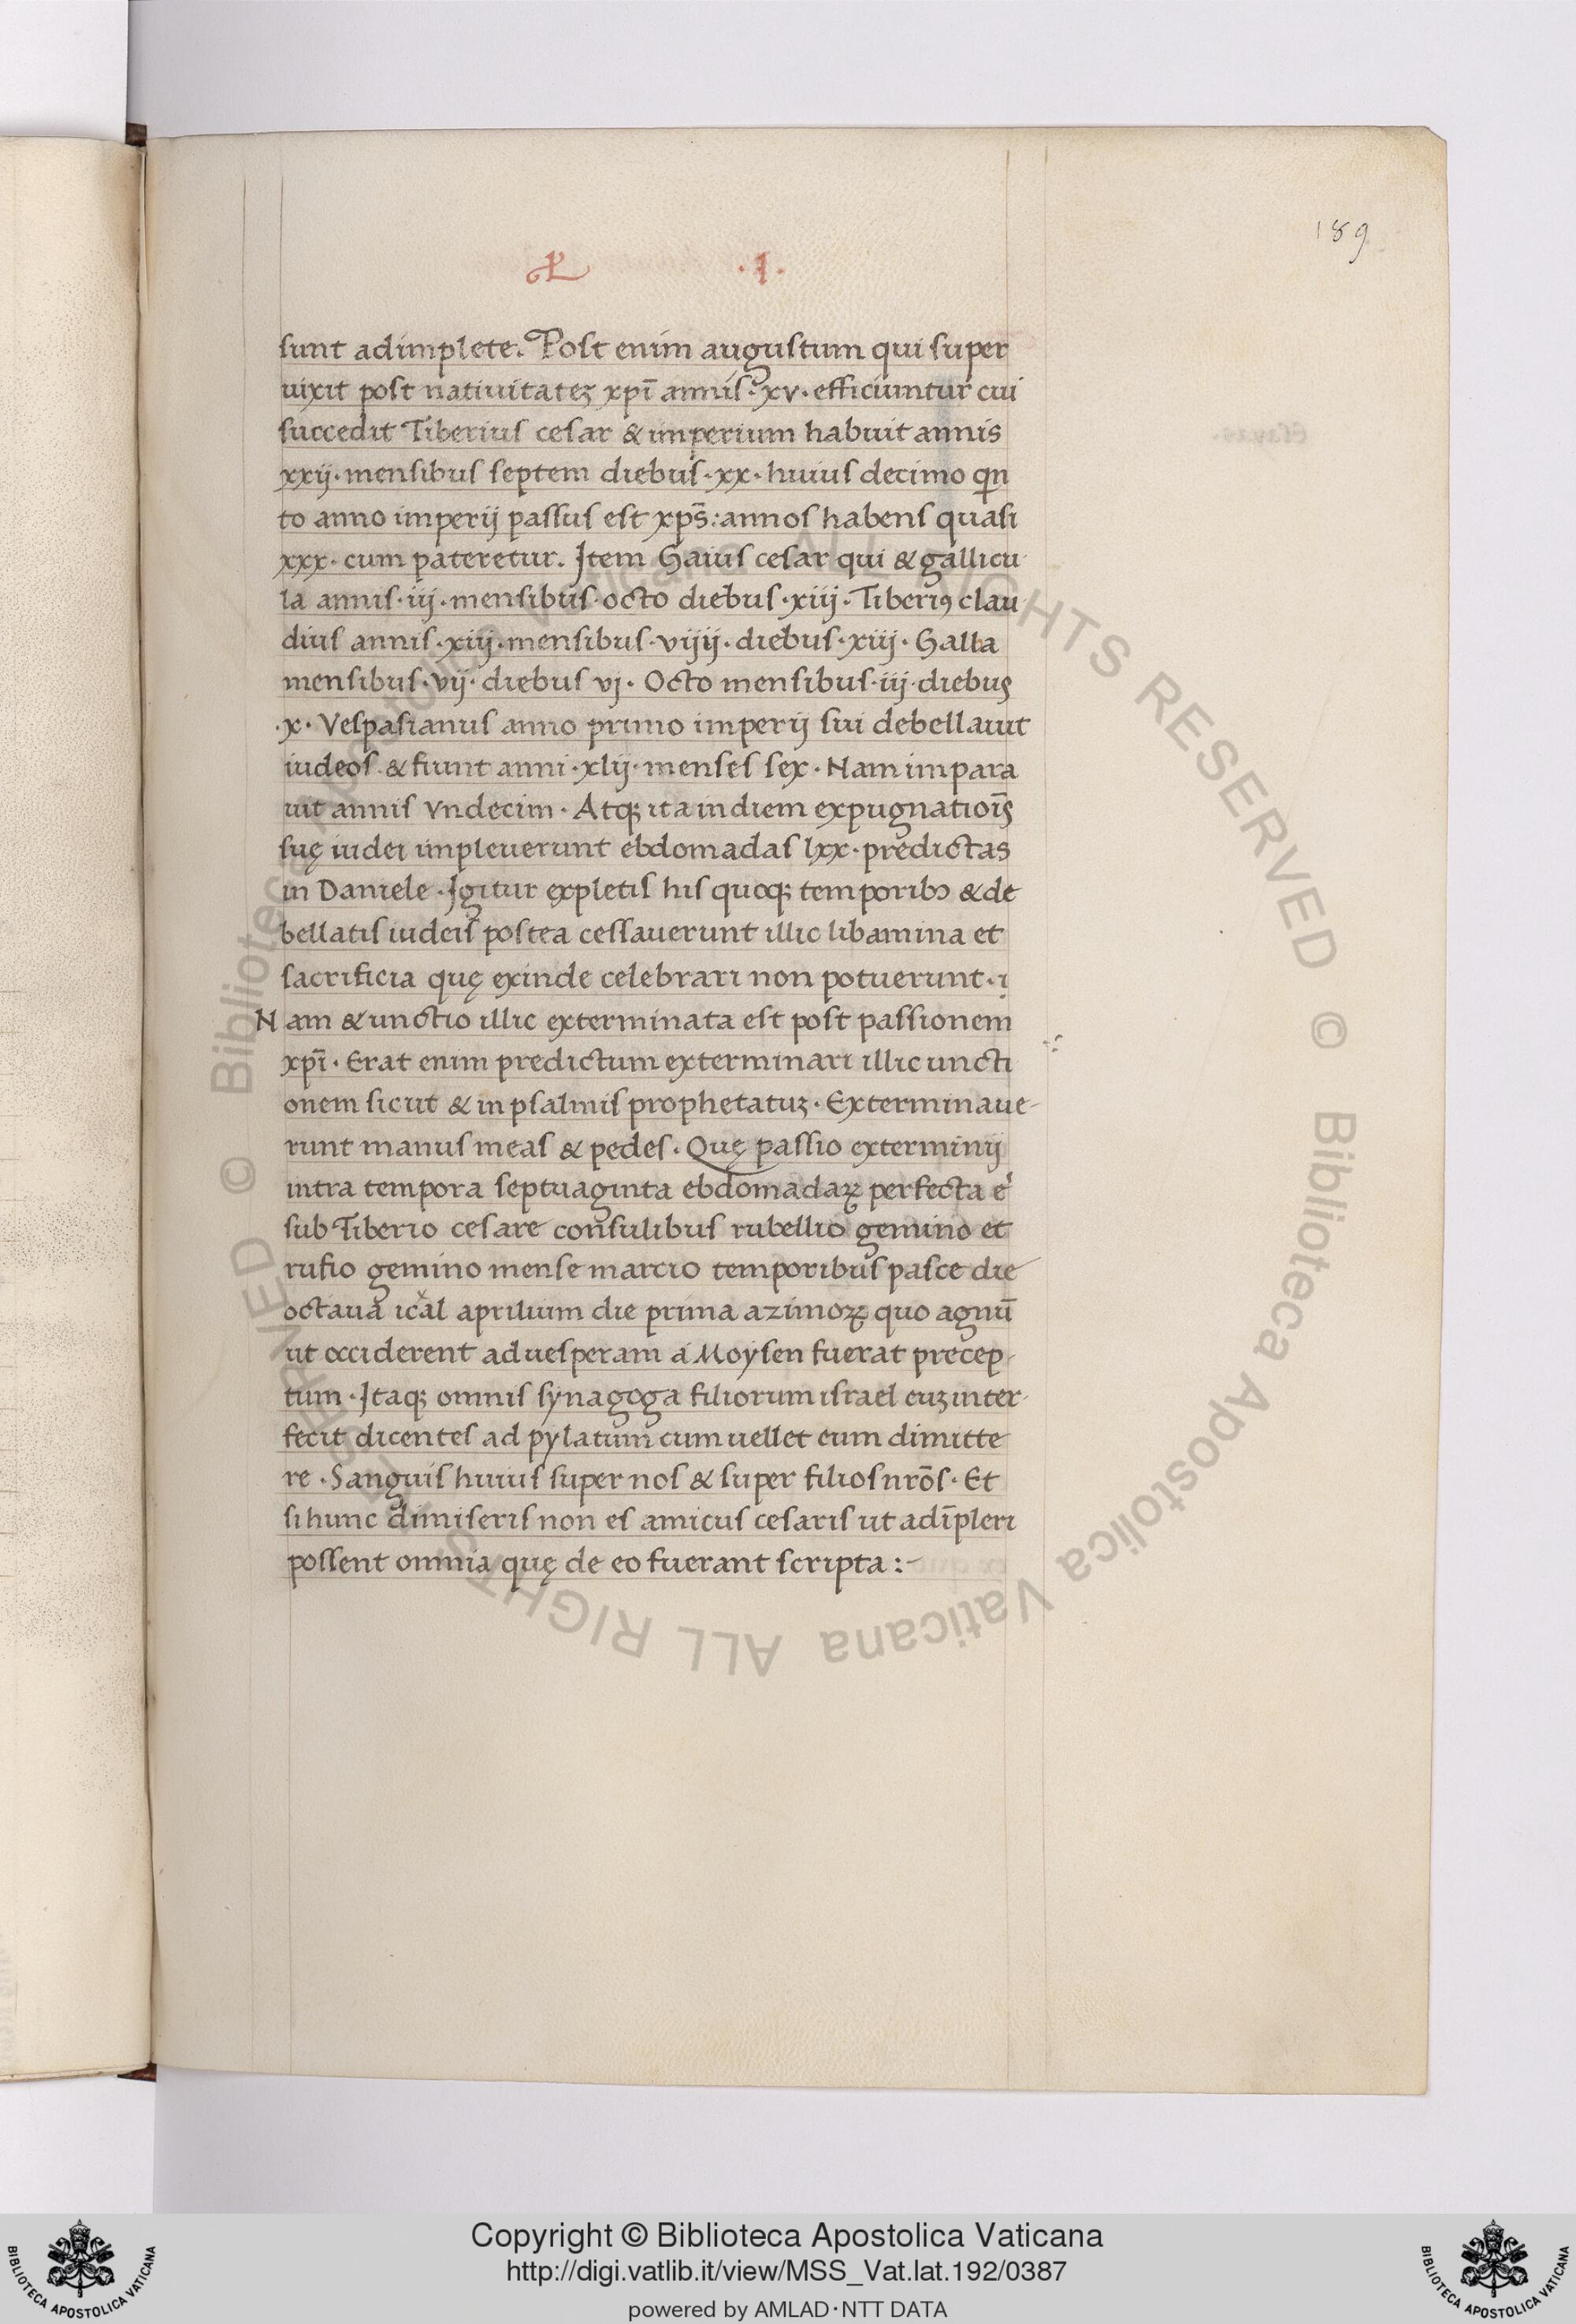 189
.I.
sunt adimplete. Post enim augustum qui super
uixit post natiuitateꝫ xpī annis ·xv· efficiuntur cui
succedit Tiberius cesar & imperium habuit annis
xxij· mensibus septem diebus ·xx· huius decimo qn
to anno imperij passus est xps̄: annos habens quasi
xxx· cum pateretur. Item Gaius cesar qui & gallicu
la annis ·iij· mensibus octo diebus ·xiij· Tiberiꝰ clau
dius annis ·xiij· mensibus ·viiij· diebus ·xiij· Galba
mensibus ·vij· diebus vj· Octo mensibus ·iij· diebus
·x· Vespasianus anno primo imperij sui debellauit
iudeos & fiunt anni ·xlij· menses sex · Nam impara
uit annis vndecim · Atqꝫ ita in diem expugnatiois̄
suę iudei impleuerunt ebdomadas lxx· predictas
in Daniele · Igitur expletis his quoqꝫ temporibꝰ & de
bellatis iudeis postea cessauerunt illic libamina et
sacrificia quę exinde celebrari non potuerunt · i
Nam & unctio illic exterminata est post passionem
xpī · Erat enim predictum exterminari illic uncti
onem sicut & in psalmis prophetatuꝫ · Exterminaue-
runt manus meas & pedes · Quę passio exterminij
intra tempora septuaginta ebdomadaꝝ perfecta ē
sub Tiberio cesare consulibus rubellio gemino et
rufio gemino mense marcio temporibus pasce die
octaua ical aprilium die prima azimoꝝ quo agnū
ut occiderent ad uesperam a Moysen fuerat precep
tum · Itaqꝫ omnis synagoga filiorum israel euꝫ inter
fecit dicentes ad pylatum cum uellet eum dimitte
re · Sanguis huius super nos & super filios nrōs · Et
si hunc dimiseris non es amicus cesaris ut adīpleri
possent omnia quę de eo fuerant scripta :-
Copyright © Biblioteca Apostolica Vaticana
http://digi.vatlib.it/view/MSS_Vat.lat.192/0387
powered by AMLAD·NTT DATA
BIBLIOTECA APOSTOLICA VATICANA
BIBLIOTECA APOSTOLICA VATICANA
© Biblioteca Apostolica Vaticana ALL RIGHTS RESERVED © Biblioteca Apostolica Vaticana ALL RIGHTS RESERVED